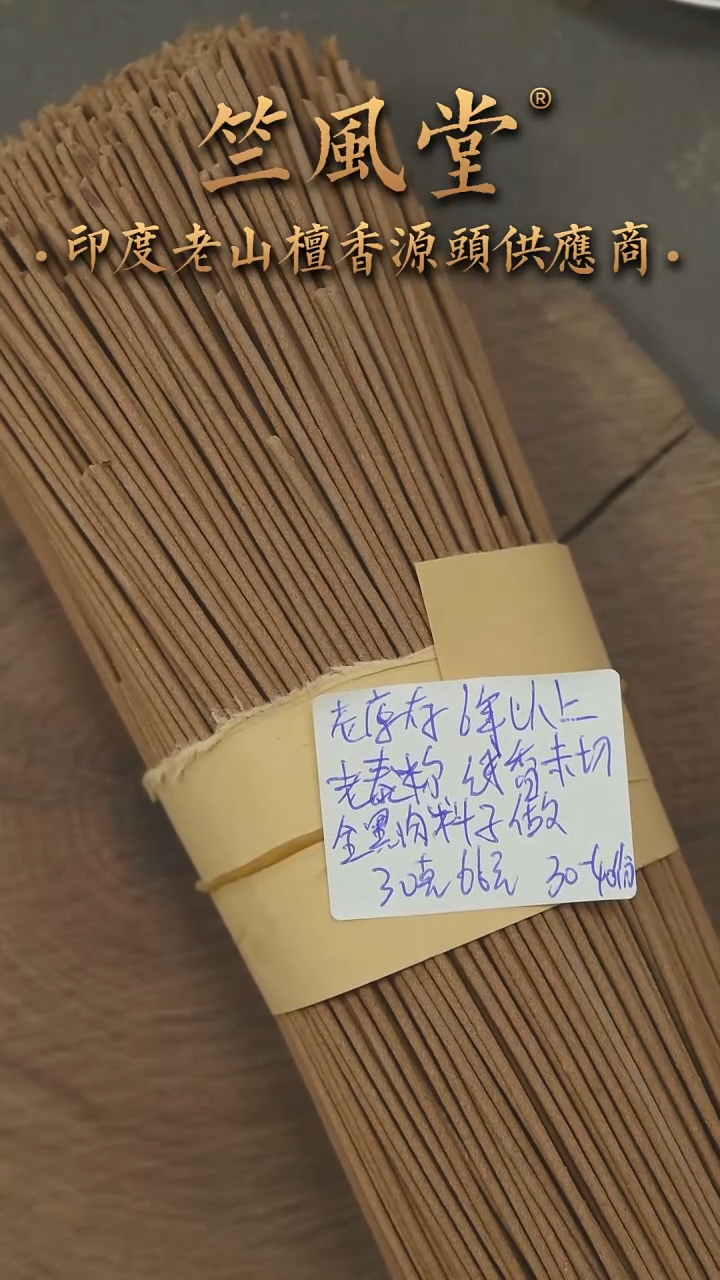 竺風堂®
·印度老山檀香源頭供應商·
老库存 6年以上
老泰粉 线香未切
全黑肉料子做
30克 66元 30-40份